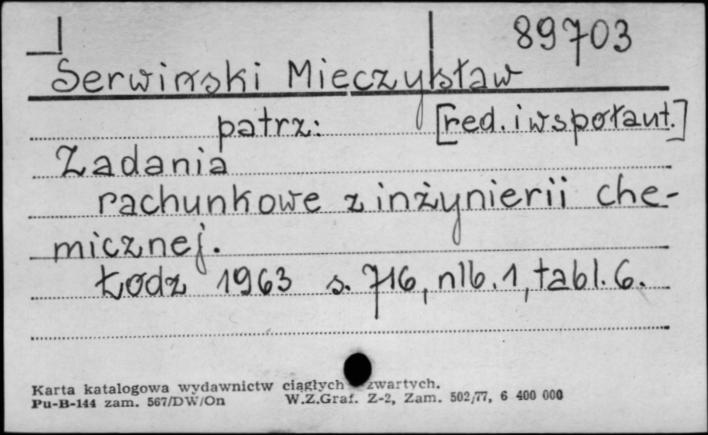 89703
Serwiński Mieczysław
patrz: [red. i współaut.]
Zadania
rachunkowe z inżynierii che-
micznej.
Łódz 1963 s. 716, nlb. 1, tabl. 6.
Karta katalogowa wydawnictw ciągłych zwartych.
Pu-B-144 zam. 567/DW/On W.Z.Graf. Z-2, Zam. 502/77, 6 400 000